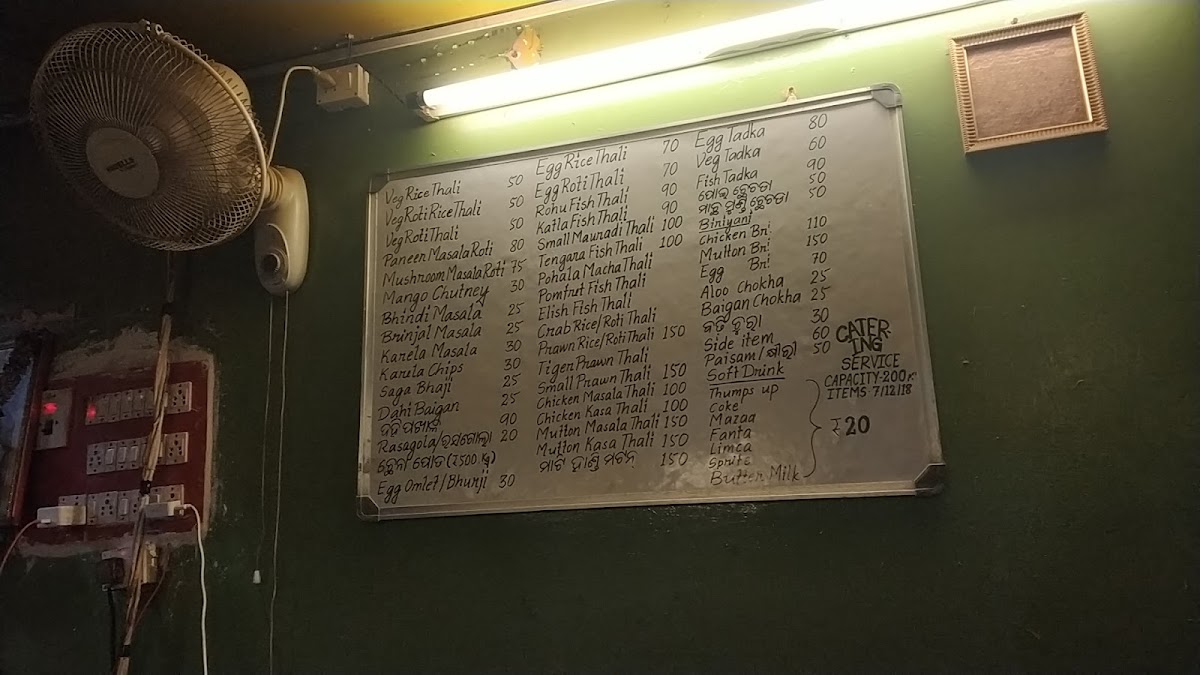 HAVELLS
Veg Rice Thali 50
Veg Roti Rice Thali 50
Veg Roti Thali 50
Paneer Masala Roti 80
Mushroom Masala Roti 75
Mango Chutney 30
Bhindi Masala 25
Brinjal Masala 25
Karela Masala 30
Karela Chips 30
Saga Bhaji 25
Dahi Baigan 25
ଦହି ପଖାଳ 90
Rasagola/ରସଗୋଲା 20
ଛେନା ପୋଡ (₹500 Kg)
Egg Omlet/Bhurji 30
Egg Rice Thali 70
Egg Roti Thali 70
Rohu Fish Thali 90
Katla Fish Thali 90
Small Mauradi Thali 100
Tengara Fish Thali 100
Pohala Macha Thali
Pomfret Fish Thali
Elish Fish Thali
Crab Rice/Roti Thali
Prawn Rice/Roti Thali 150
Tiger Prawn Thali
Small Prawn Thali 150
Chicken Masala Thali 100
Chicken Kasa Thali 100
Mutton Masala Thali 150
Mutton Kasa Thali 150
ମାଟି ହାଣ୍ଡି ମଟନ୍ 150
Egg Tadka 80
Veg Tadka 60
Fish Tadka 90
ପୋଇ ଛେଚଡା 50
ମାଛ ମୁଣ୍ଡି ଛେଚଡା 50
Biriyani
Chicken Bri 110
Mutton Bri 150
Egg Bri 70
Aloo Chokha 25
Baigan Chokha 25
ବଡି ଚୁରା 30
Side item 60
Paisam/ 50
Soft Drink
Thumps up
Coke
Mazaa
Fanta
Limca
Sprite
Butter Milk
₹20
CATER-
ING
SERVICE
CAPACITY-200
ITEMS 7/12/18